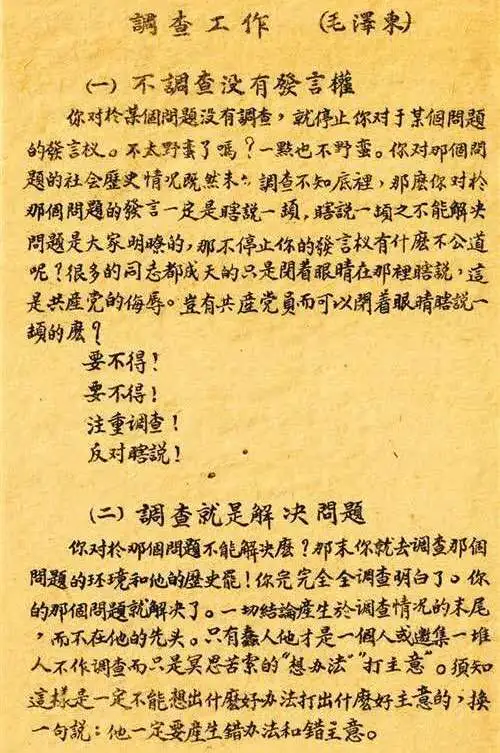 調查工作 (毛澤東)
(一) 不調查没有發言權
你对於某個問題没有調查，就停止你对于某個問題
的發言权。不太野蛮了嗎？一點也不野蛮。你对那個問
題的社会歷史情况既然未 調查不知底裡，那麽你对於
那個問題的發言一定是瞎説一頓，瞎説一頓之不能解决
問題是大家明瞭的，那不停止你的發言权有什麽不公道
呢？很多的同志都成天的只是閉着眼睛在那裡瞎説，這
是共産党的侮辱。豈有共産党員而可以閉着眼睛瞎説一
頓的麽？
要不得！
要不得！
注重调查！
反对瞎説！
(二) 調查就是解决問題
你对於那個問題不能解决麽？那末你就去調查那個
問題的环境和他的歷史罷！你完完全全調查明白了。你
的那個問題就解决了。一切結論産生於調查情况的末尾
，而不在他的先头。只有蠢人他才是一個人或邀集一堆
人不作調查而只是冥思苦索的“想办法”“打主意”。须知
這樣是一定不能想出什麽好办法打出什麽好主意的，換
一句説：他一定要産生錯办法和錯主意。